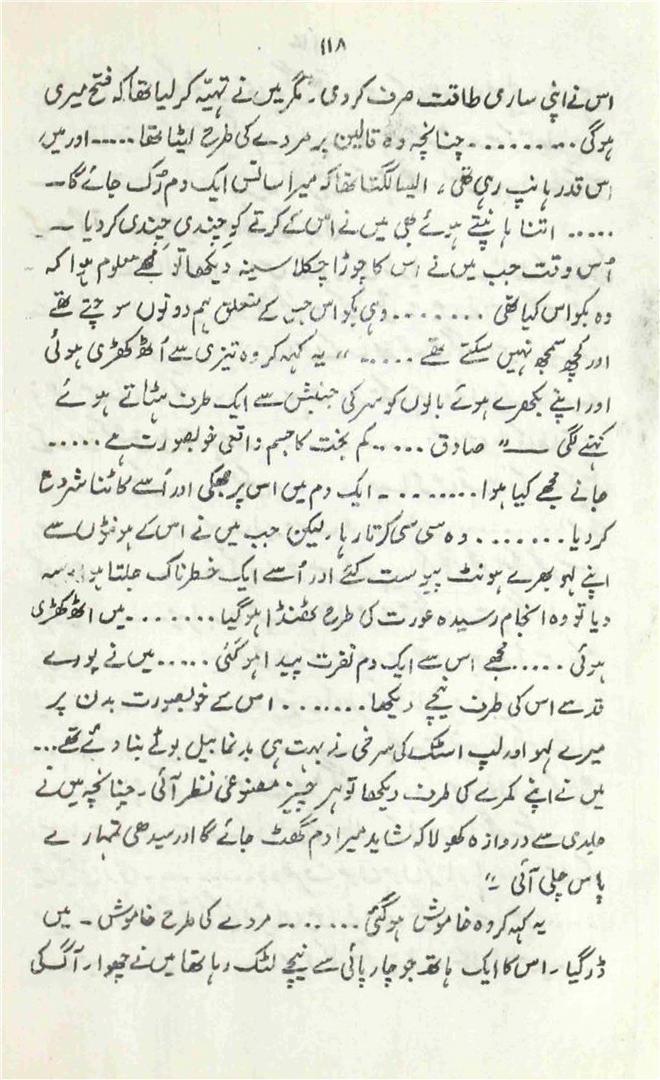 ۱۱۸
اس نے اپنی ساری طاقت صرف کر دی۔ مگر میں نے تہیّہ کر لیا تھا کہ فتح میری
ہوگی ......... چنانچہ وہ قالین پر مردے کی طرح لیٹا تھا ..... اور میں،
اس قدر ہانپ رہی تھی، ایسا لگتا تھا کہ میرا سانس ایک دم رُک جائے گا۔
..... اتنا ہانپتے ہوئے بھی میں نے اس کے کرتے کو چندی چندی کر دیا۔
اُس وقت جب میں نے اس کا چوڑا چکلا سینہ دیکھا تو مجھے معلوم ہوا کہ
وہ بکواس کیا تھی ........ وہی بکواس جس کے متعلق ہم دونوں سوچتے تھے
اور کچھ سمجھ نہیں سکتے تھے ....." یہ کہہ کر وہ تیزی سے اُٹھ کھڑی ہوئی
اور اپنے بکھرے ہوئے بالوں کو سر کی جنبش سے ایک طرف ہٹاتے ہوئے
کہنے لگی ــــ" صادق ..... کم بخت کا جسم واقعی خوبصورت ہے .....
جانے مجھے کیا ہوا ........۔ ایک دم میں اس پر جھکی اور اُسے کاٹنا شروع
کر دیا ....... وہ سی سی کرتا رہا، لیکن جب میں نے اس کے ہونٹوں سے
اپنے لہو بھرے ہونٹ پیوست کئے اور اُسے ایک خطرناک جلتا ہوا بوسہ
دیا تو وہ انجام رسیدہ عورت کی طرح ٹھنڈا ہو گیا ........ میں اٹھ کھڑی
ہوئی ..... مجھے اس سے ایک دم نفرت پیدا ہو گئی ..... میں نے پورے
قد سے اس کی طرف نیچے دیکھا ....... اس کے خوبصورت بدن پر
میرے لہو اور لپ اسٹک کی سرخی نے بہت ہی بدنما بیل بوٹے بنا دئے تھے...
میں نے اپنے کمرے کی طرف دیکھا تو ہر چیز مصنوعی نظر آئی۔ چنانچہ میں نے
جلدی سے دروازہ کھولا کہ شاید میرا دم گھٹ جائے گا اور سیدھی تمہارے
پاس چلی آئی۔"
یہ کہہ کر وہ خاموش ہو گئی ...... مردے کی طرح خاموش۔ میں
ڈر گیا۔ اس کا ایک ہاتھ جو چارپائی سے نیچے لٹک رہا تھا میں نے چھوا۔ آگ کی